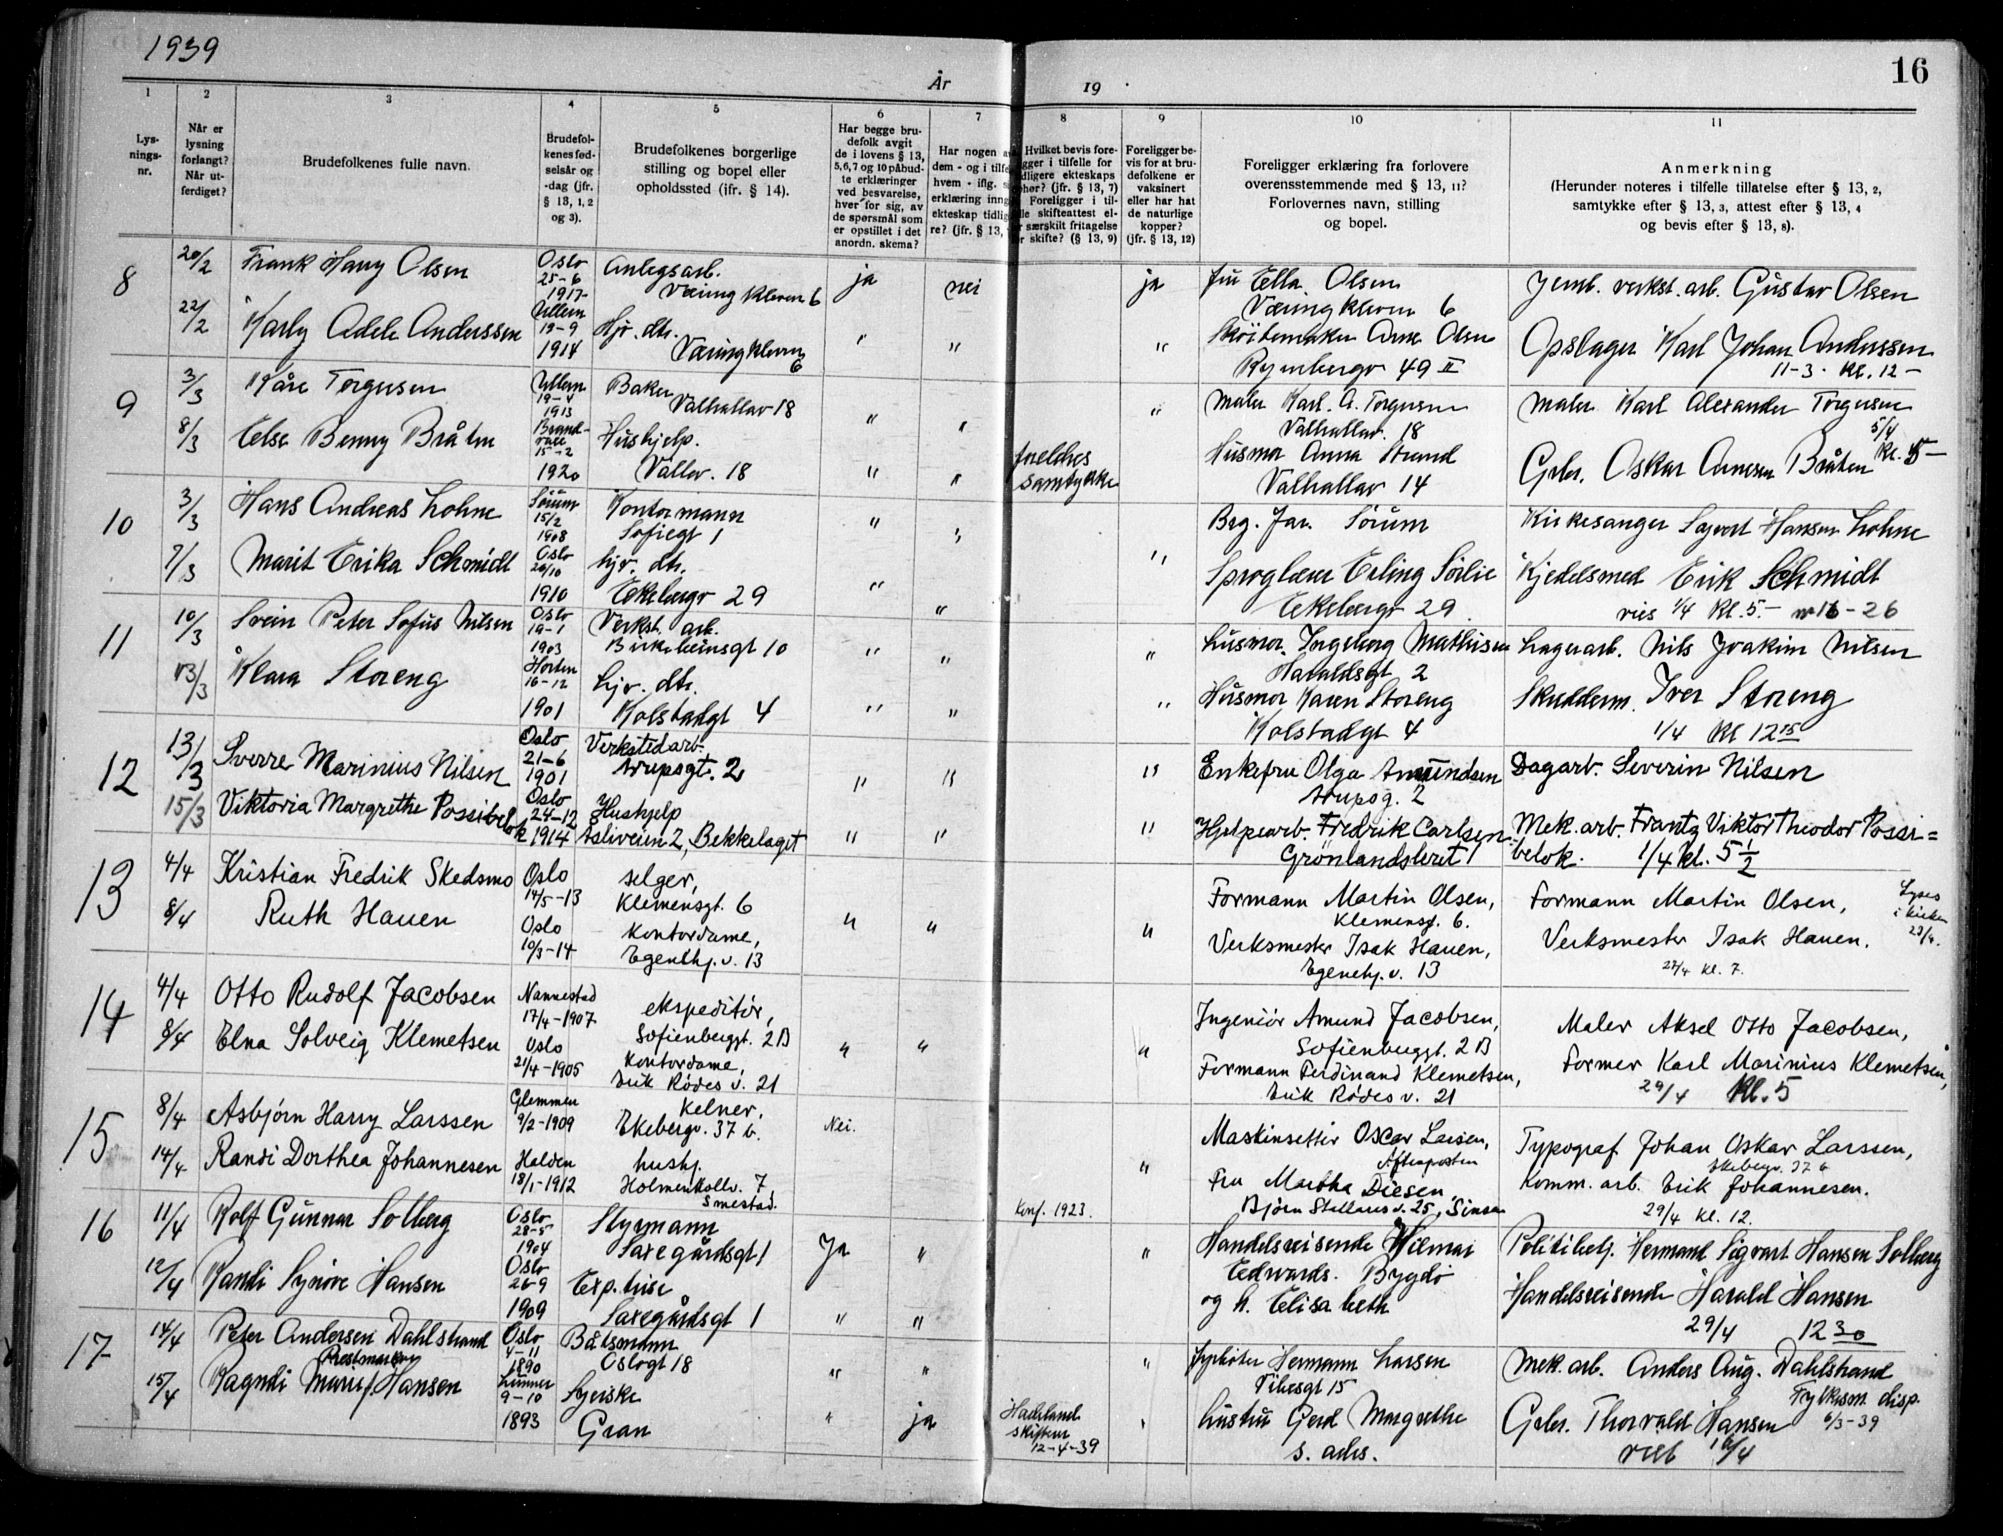 1939
År
19
16
1
2
3
4
5
6
7
8
9
10
11
Lys-
nings-
nr.
Når er
lysning
forlangt?
Når ut-
ferdiget?
Brudefolkenes fulle navn.
Brudefol-
kenes fød-
selsår og
-dag (jfr.
§ 13, 1, 2
og 3).
Brudefolkenes borgerlige
stilling og bopel eller
opholdssted (jfr. § 14).
Har begge bru-
defolk avgit
de i lovens § 13,
5,6,7 og 10 påbud-
te erklæringer
ved besvarelse,
hver for sig, av
de spørsmål som
er opstillet i det
anordn. skema?
Har nogen a
dem - og i tilfe
hvem - iflg. s
erklæring inng
ekteskap tidlig
re? (jfr. § 13,
Hvilket bevis fore-
gger i tilfelle for
dligere ekteskaps
phør? (jfr. § 13, 7)
Foreligger i til-
lle skifteattest el-
r særskilt fritagelse
r skifte? (§ 13, 9)
Foreligger be-
vis for at bru-
defolkene er
vaksinert
eller har hat
de naturlige
kopper?
(jfr. § 13, 12)
Foreligger erklæring fra forlovere
overensstemmende med § 13, 11?
Forlovernes navn, stilling
og bopel.
Anmerkning
(Herunder noteres i tilfelle tillatelse efter § 13, 2,
samtykke efter § 13, 3, attest efter § 13, 4
og bevis efter § 13, 8).
8
20/2
Frank Harry Olsen
Oslo
25-6
1917
Anlegsarb.
Væringkleven 6
ja
nei
ja
fru Ella Olsen
Væringkleven 6
Jernb. verkst. arb. Gustav Olsen
22/2
Karly Adele Anderssen
Ullern
19-9
1914
Hjv. dtr.
Væringkleven
6
"
"
"
Skóitemaker Arne Olsen
Rynbergv 49 II
Opslager Karl Johan Anderssen
11-3. Kl. 12-
9
3/3
Kåre Torgersen
Ullern
19-4
1913
Baker
Valhallav 18
"
"
"
Maler Karl. A. Torgersen
Valhallav. 18
Maler Karl Alexander Torgersen
5/4
Kl. 5-
8/3
Else Benny Bråten
15-2
1920
Hushjelp.
Vallav. 18
"
"
foreldres
samtykke
Husmor Anna Strand
Valhallav 14
Grbr. Oskar Arnesen Bråten
10
3/3
Hans Andreas Lohne
Sørum
15/2
1908
Kontormann
Sofiegt 1
"
"
"
Brg. Jar. Sörum
Kirkesanger Syvert Hansen Lohne
7/3
Marit Erika Schmidt
Oslo
20/10
1910
hjv. dtr.
Ekebergv 29
"
"
Sproglærer Erling Sörlie
Ekebergv 29
Kjedelsmed Erik Schmidt
vies 1/4 Kl. 5.-
11
10/3
Svein Peter Sofus Nilsen
Oslo
19-1
1903
Verkst. arb.
Birkebeinsgt 10
"
"
"
Husmor. Ingeborg Mathisen
Haraldsgt 2
Lagerarb. Nils Joakim Nilsen
13/3
Klara Storeng
Horten
16-12
1901
hjv. dtr.
Kolstadgt 4
"
"
"
Husmor Karen Storeng
Kolstadgt 4
Skudderm. Iver Storeng
1/4 Kl 12 15
12
13/3
Sverre Marinius Nilsen
Oslo
21-6
1901
Verkstedarb.
Arupsgt. 2
"
"
"
Enkefru Olga Amundsen
Arupsg. 2
Dagarb. Severin Nilsen
15/3
Viktoria Margrethe Possibelok
Oslo
24-12
1914
Hushjelp
Åsliveien 2, Bekkelaget
"
"
"
Hjelpearb. Fredrik Carlsen
Grönlandsleret 1
Mek. arb. Frantz Viktor Theodor Possi=
belok. 1/4 kl. 5 1/2
13
4/4
Kristian Fredrik Skedsmo
Oslo
14/5-13
selger,
Klemensgt. 6
"
"
"
Formann Martin Olsen,
Klemensg. 6.
Formann Martin Olsen,
Lyses
i kirken
23/4.
8/4
Ruth Hauen
Oslo
10/3-14
Kontordame,
Egenehj. v. 13
Verksmester Isak Hauen,
Egenehj. v. 13
Verksmester Isak Hauen.
27/4 kl. 7.
14
4/4
Otto Rudolf Jacobsen
Nannestad
17/4-1907
ekspeditör,
Sofienberggt. 2B
"
"
"
Ingeniör Amund Jacobsen,
Sofienberggt. 2B
Maler Aksel Otto Jacobsen,
8/4
Elna Solveig Klemetsen
Oslo
21/4-1905
Kontordame,
Erik Rödes v. 21
Formann Ferdinand Klemetsen,
Erik Rödes v. 21
Former Karl Marinius Klemetsen,
29/4 Kl. 5
15
8/4
Asbjörn Harry Larssen
Glemmen
9/2-1909
Kelner,
Ekebergv. 37 b.
Nei.
"
Maskinsetter Oscar Larsen,
Aftenposten
Typograf Johan Oskar Larssen,
Ekebergv. 37 b
14/4
Randi Dorthea Johannesen
Halden
18/1-1912
hushj.
Holmenkollv. 7,
Smestad.
Konf. 1923.
Fru Martha Diesen,
Björn Stallares v. 25, Sinsen
Komm. arb. Erik Johannesen.
29/4 kl. 12.
16
11/4
Rolf Gunnar Solberg
Oslo
28-5
1904
Styrmann
Saxegårdsgt 1
Ja
"
"
Handelsreisende Hilmar
Edwards. Bygdö
og h. Elisabeth
Politibetj. Hermand Sigvart Hansen Solberg
12/4
Randi Synöve Hansen
Oslo
26-9
1909
Exp. trise
Saxegårdsgt 1
"
"
Handelsreisende Harald Hansen
29/4 12 30
17
14/4
Peter Andersen Dahlstrand
Oslo
4-11
1890
Båtsmann
Oslogt 18
"
"
"
Fyrböter Hermann Larsen
Vibesgt 15
Mek. arb. Anders Aug. Dahlstrand
Fylkesm. disp.
6/3-39
15/4
Ragndi Marie Hansen
Lunner
9-10
1893
Syerske
Gran
"
ja
Hadeland
skifterett
12-4-39
"
Hustru Gerd Margrethe
s. adrs.
Grbr. Thorvald Hansen
viet 16/4